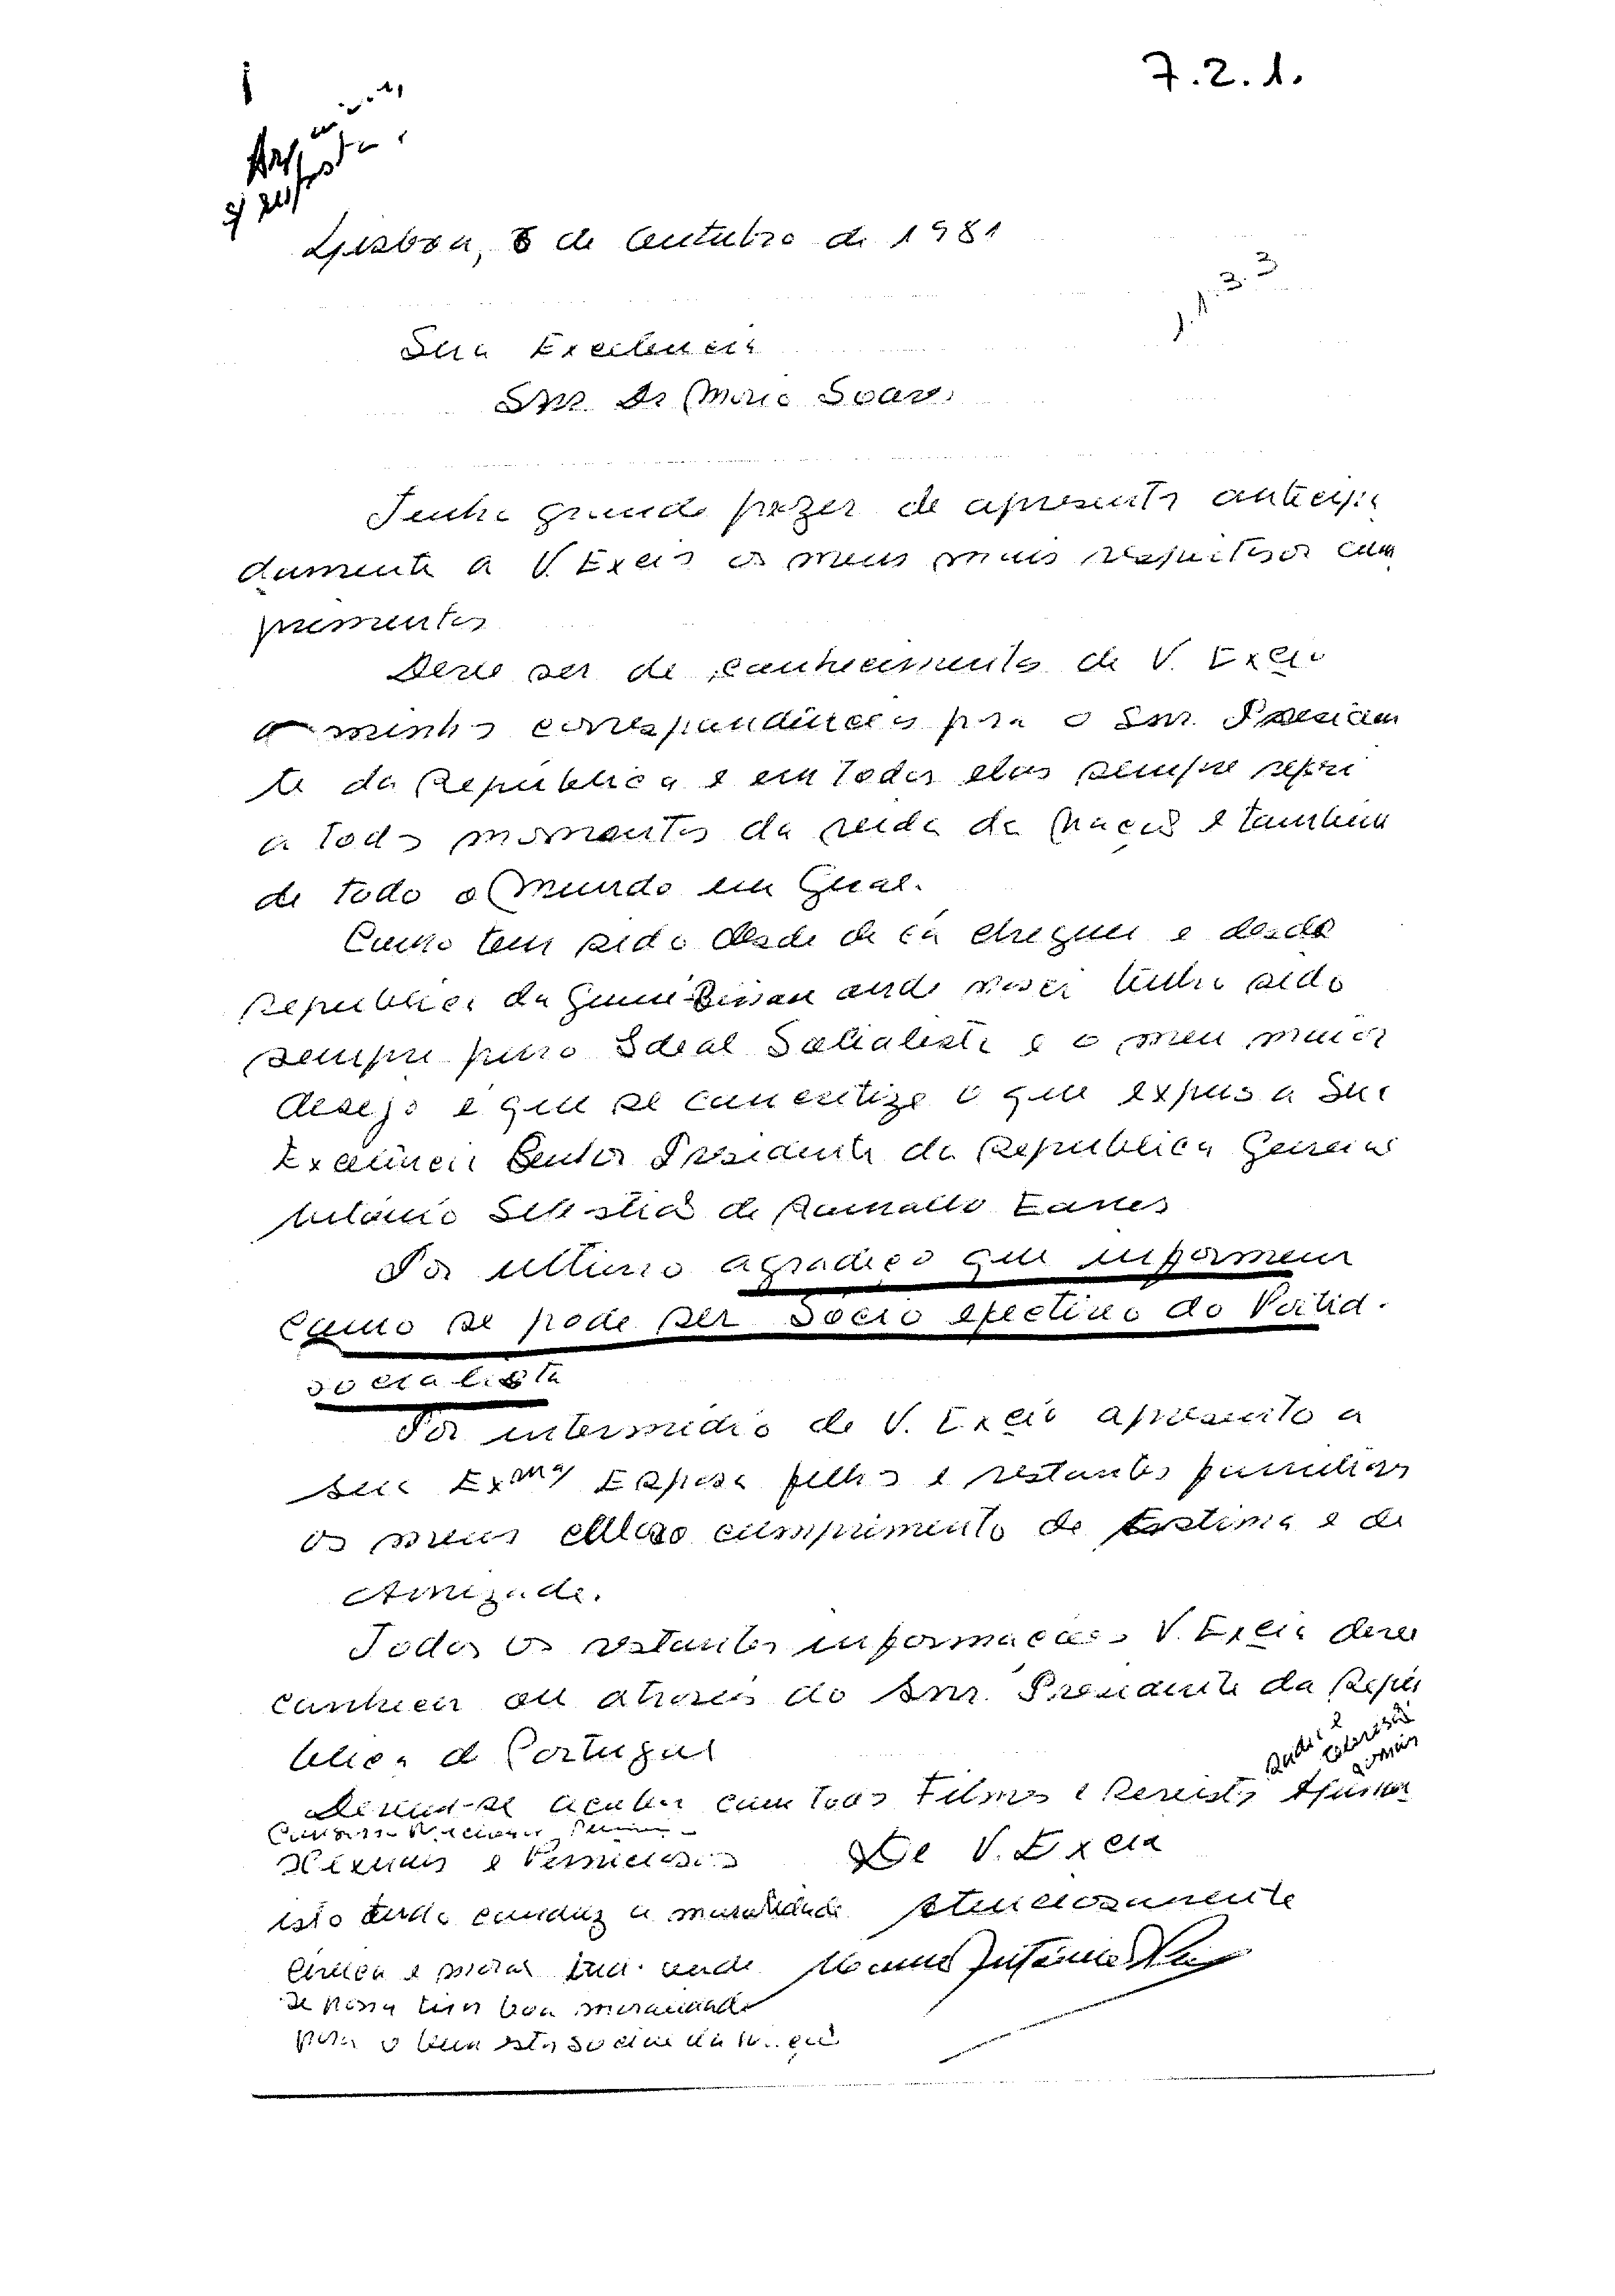 7.2.1.
Lisboa, 6 de Outubro de 1981
1.1.3.3
Sua Excelencia
Snr. Dr Mário Soares
Tenho grande prazer de apresentar antecipa
damente a V. Excia os meus mais respeitosos cum
primentos
Deve ser de conhecimento de V. Excia
a minhas correspondências pra o Snr. Presiden
te da República e em todas elas sempre referi
a todos momentos da vida da Nação e também
de todo o Mundo em Geral.
Como tem sido desde de cá cheguei e desda
Republica da Guiné-Bissau onde nasci tenho sido
sempre puro Ideal Socialista e o meu maior
desejo é que se concretize o que expus a Sua
Excelência Senhor Presidente da Republica General
António Sebastião de Ramalho Eanes
Por ultimo agradeço que informem
Como se pode ser Sócio efectivo do Partido
socialista
Por intermédio de V. Excia apresento a
sua Exma Esposa filhos e restantes familiares
os meus cumprimento de Estima e de
Amizade.
Todas os restantes informações V. Excia deve
conhecer ou através do Snr. Presidente da Repú
blica de Portugal
Devem-se acabar com todos Filmes e Revistas
sexuais e Perniciosos
De V. Excia
isto tudo conduz a moralidade
Atenciosamente
civica e moral onde
Manuel António
se possa ter boa moralidade
para o bem estar social da Nação